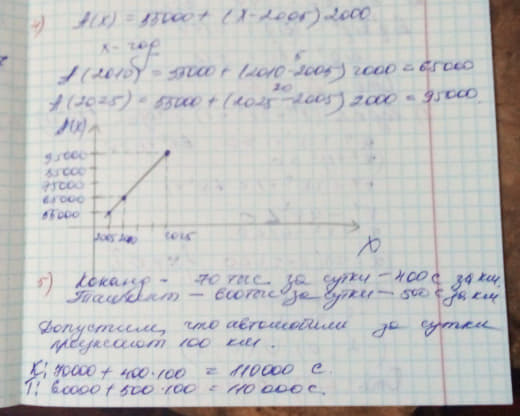 4) A(x) = 55000 + (x-2005) 2000.
x - год
A(2010) = 55000 + (2010-2005) 2000 = 65000
5
A(2025) = 55000 + (2025-2005) 2000 = 95000.
20
A(x)
95000
85000
75000
65000
55000
2005 2010 2025
X
5) Коканд - 70 тыс за сутки - 400 с за км.
Ташкент - 60 тыс за сутки - 500 с за км
Допустим, что автомобили за сутки
проезжают 100 км.
К: 70000 + 400·100 = 110000 с.
Т: 60000 + 500·100 = 110000 с.